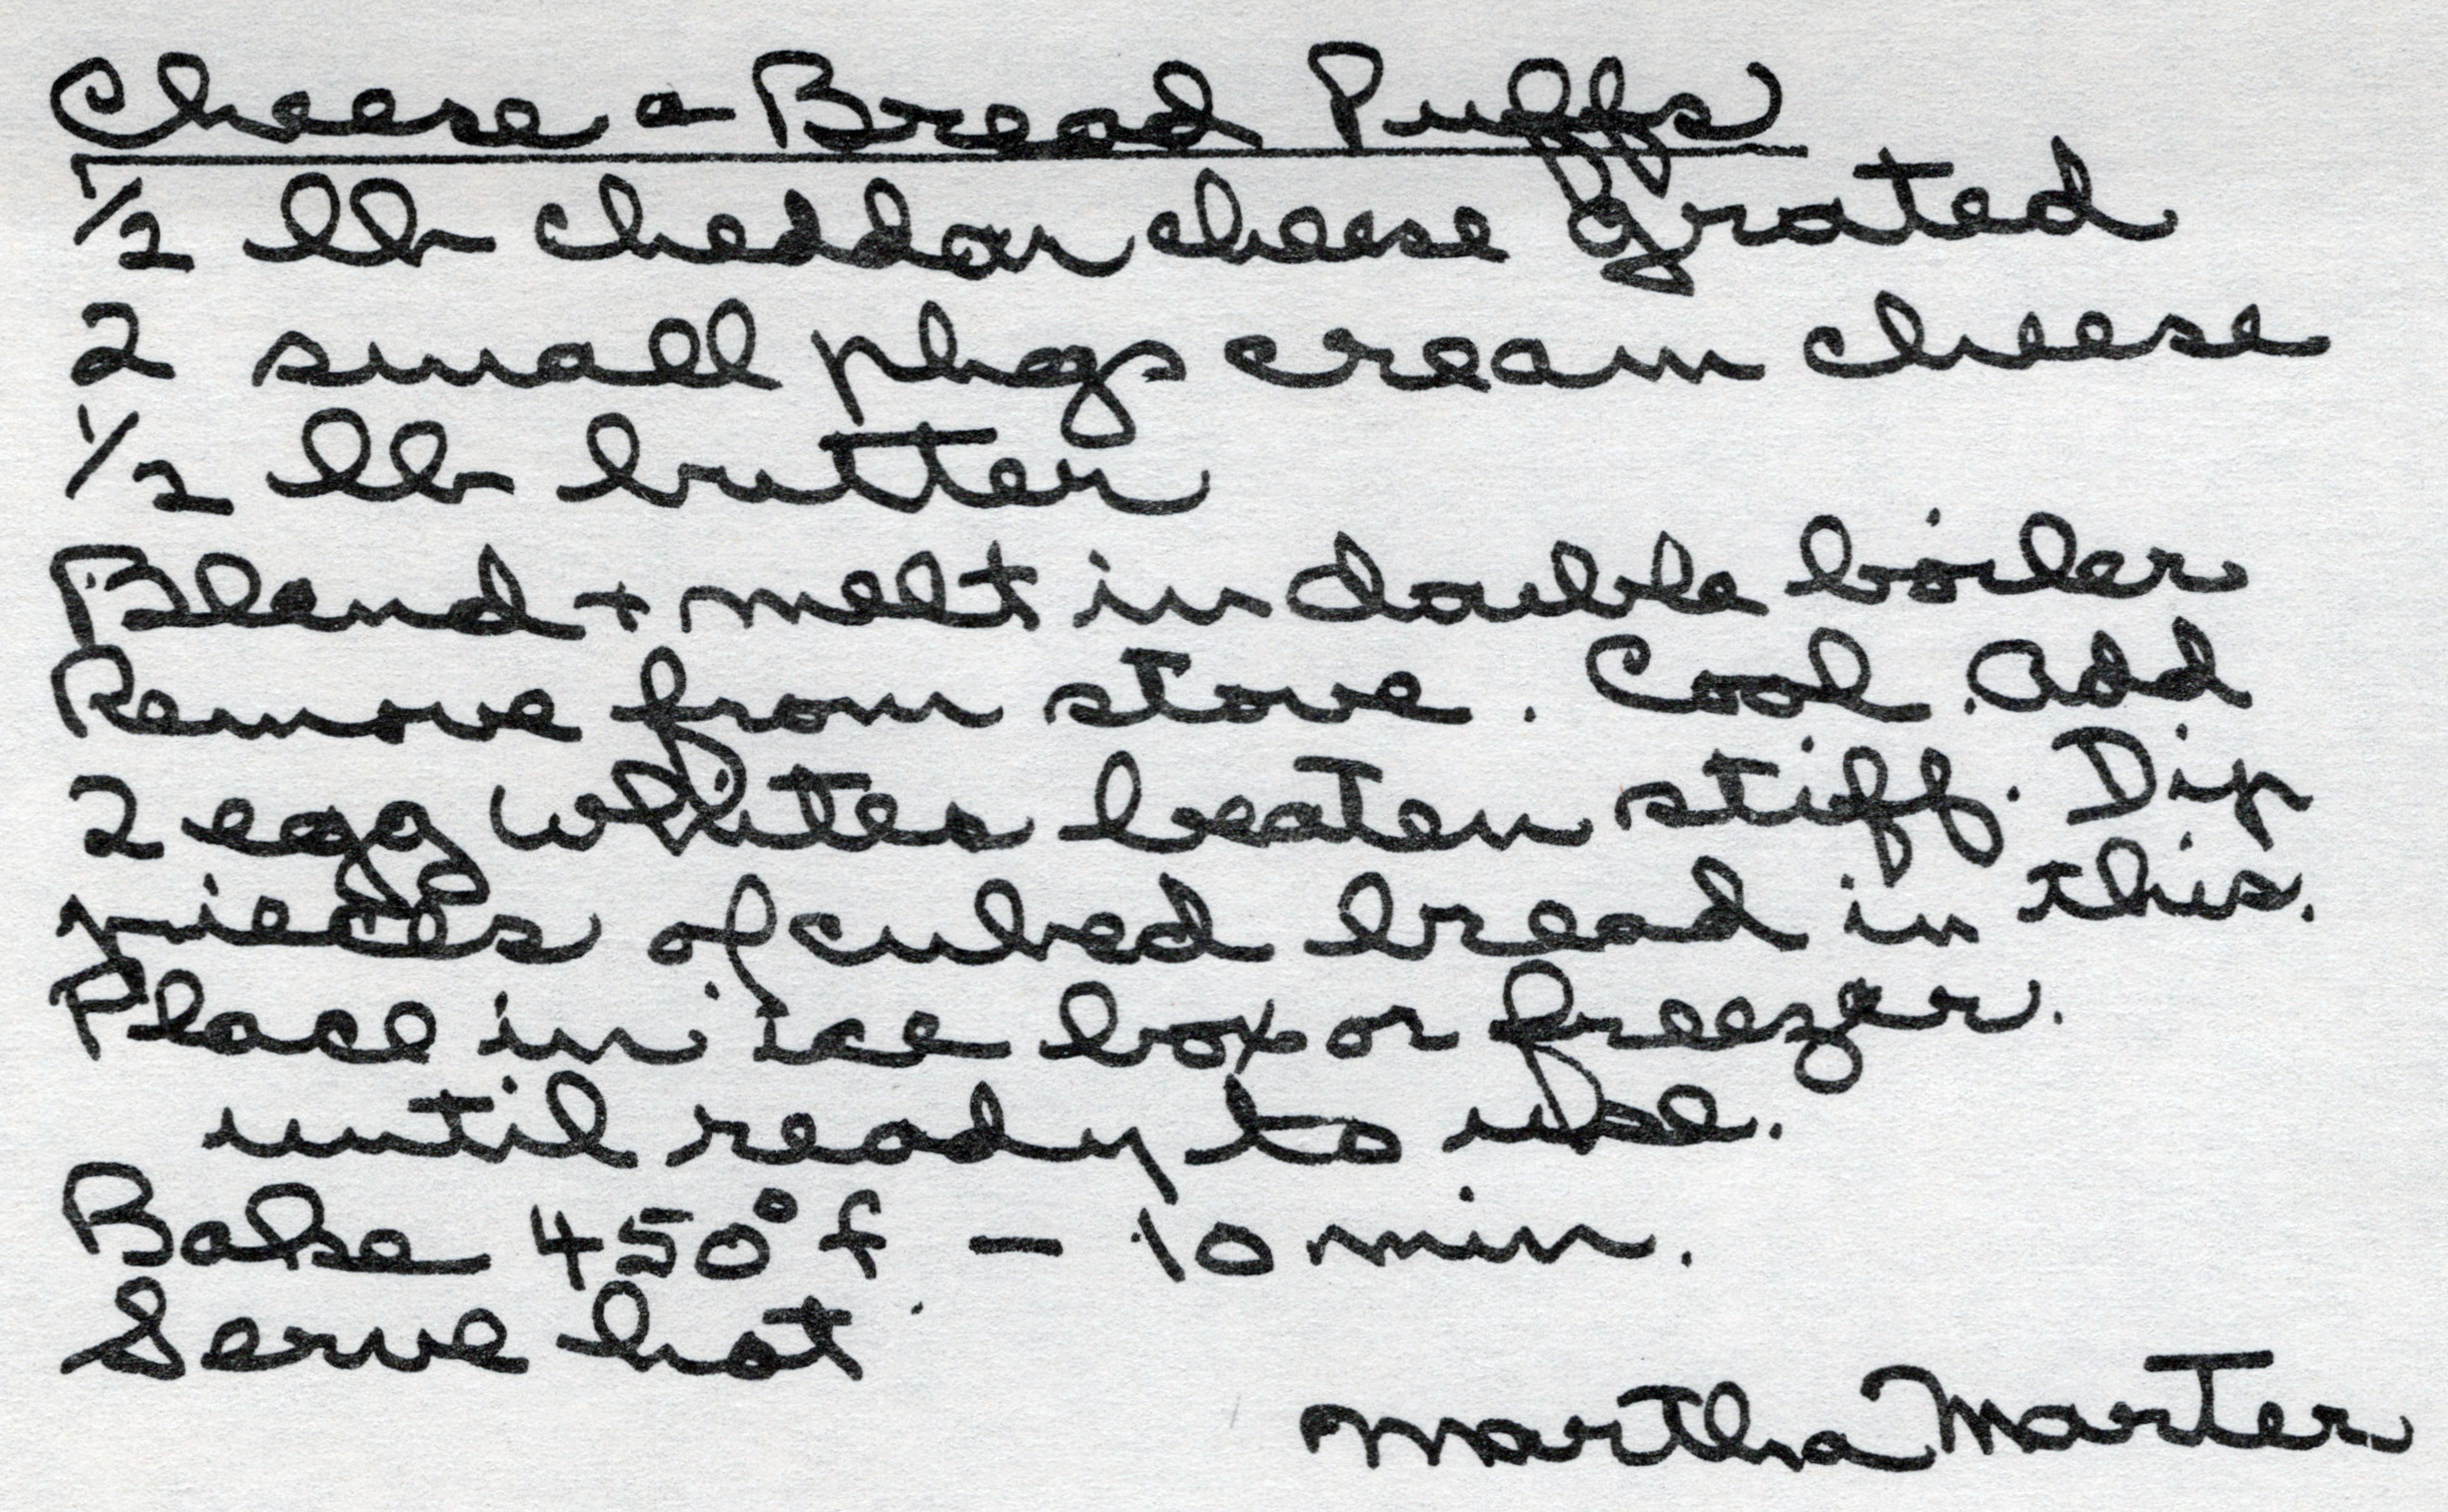 Cheese a Bread Puffs
1/2 lb cheddar cheese grated
2 small pkgs cream cheese
1/2 lb butter
Blend + melt in double boiler
Remove from stove. Cool. Add
2 egg whites beaten stiff. Dip
pieces of cubed bread in this.
Place in ice box or freezer.
until ready to use.
Bake 450° f - 10 min.
Serve hot.
Martha Marter